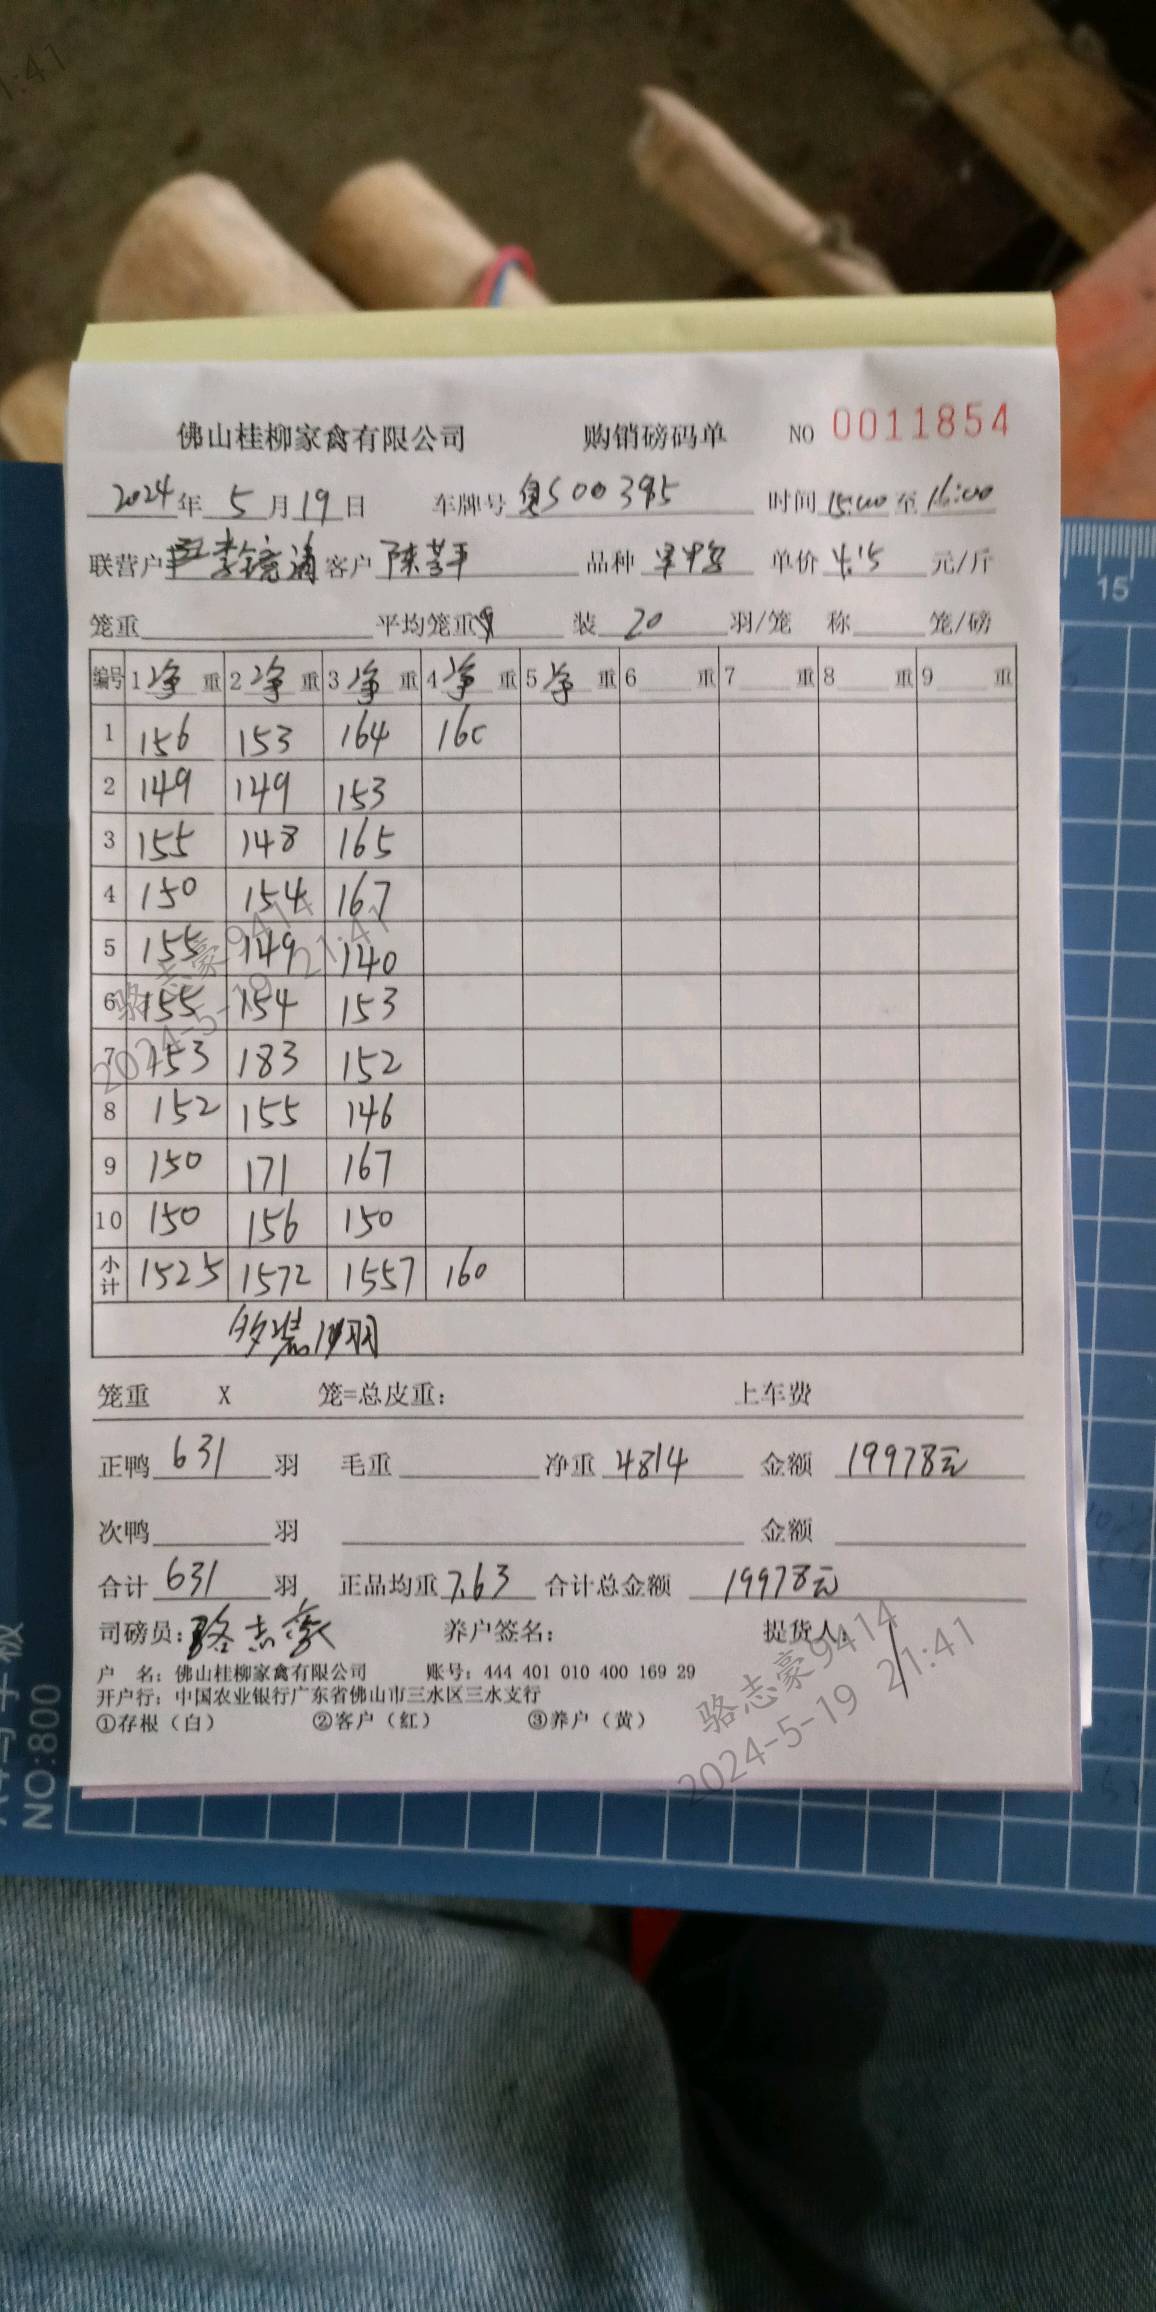 1:41
佛山桂柳家禽有限公司 购销磅码单 NO 0011854
2024年 5月19日 车牌号 粤S00395 时间 15:00 至 16:00
联营户 李镜清 客户 陈 平 品种 单价 4.15 元/斤
笼重 平均笼重 装 20 羽/笼 称 笼/磅
编号 1净重 2净重 3净重 4净重 5净重 6 重 7 重 8 重 9 重
1 156 153 164 160
2 149 149 153
3 155 148 165
4 150 154 167
5 155 149 140
6 155 154 153
7 153 183 152
8 152 155 146
9 150 171 167
10 150 156 150
小计 1525 1572 1557 160
多装11羽
笼重 X 笼=总皮重: 上车费
正鸭 631 羽 毛重 净重 4814 金额 19978元
次鸭 羽 金额
合计 631 羽 正品均重 7.63 合计总金额 19978元
司磅员: 骆志豪 养户签名: 提货人:
户 名: 佛山桂柳家禽有限公司 账号: 444 401 010 400 169 29
开户行: 中国农业银行广东省佛山市三水区三水支行
①存根（白） ②客户（红） ③养户（黄）
骆志豪9414
2024-5-19 21:41
骆志豪9414
2024-5-19 21:41
15
NO:800